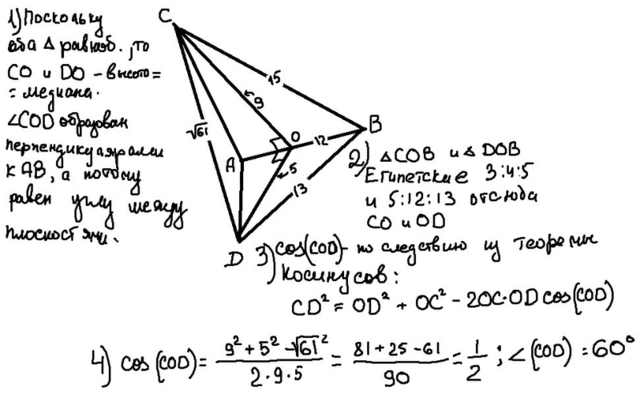 1) Поскольку
оба Δ равноб., то
CO и DO – высота =
= медиана.
∠COD образован
перпендикулярами
к AB, а потому
равен углу между
плоскостями.
C
15
9
√61
O
12
B
A
5
13
D
2) ΔCOB и ΔDOB
Египетские 3:4:5
и 5:12:13 отсюда
CO и OD
3) cos(COD) – по следствию из теоремы
косинусов:
CD² = OD² + OC² – 2OC·OD cos(COD)
4) cos(COD) = (9² + 5² – √61²)/(2·9·5) = (81 + 25 – 61)/90 = 1/2 ; ∠(COD) = 60°